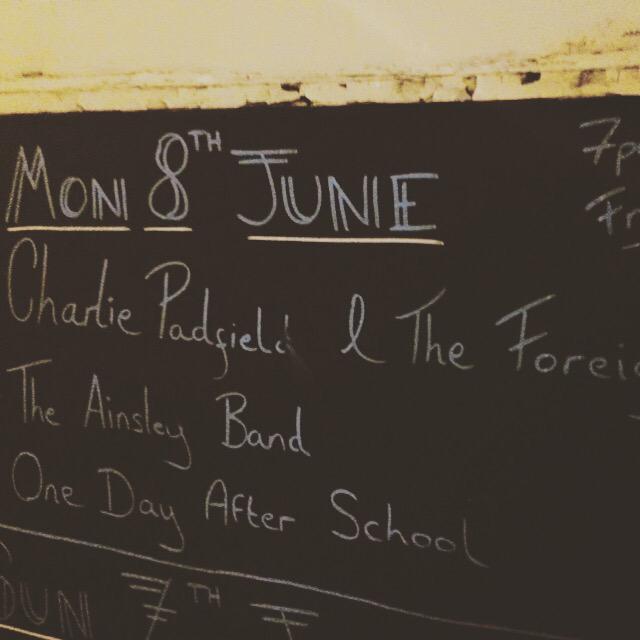 MON 8TH JUNE 7p
Fr
Charlie Padfield & The Foreig
The Ainsley Band
One Day After School
SUN 7TH J